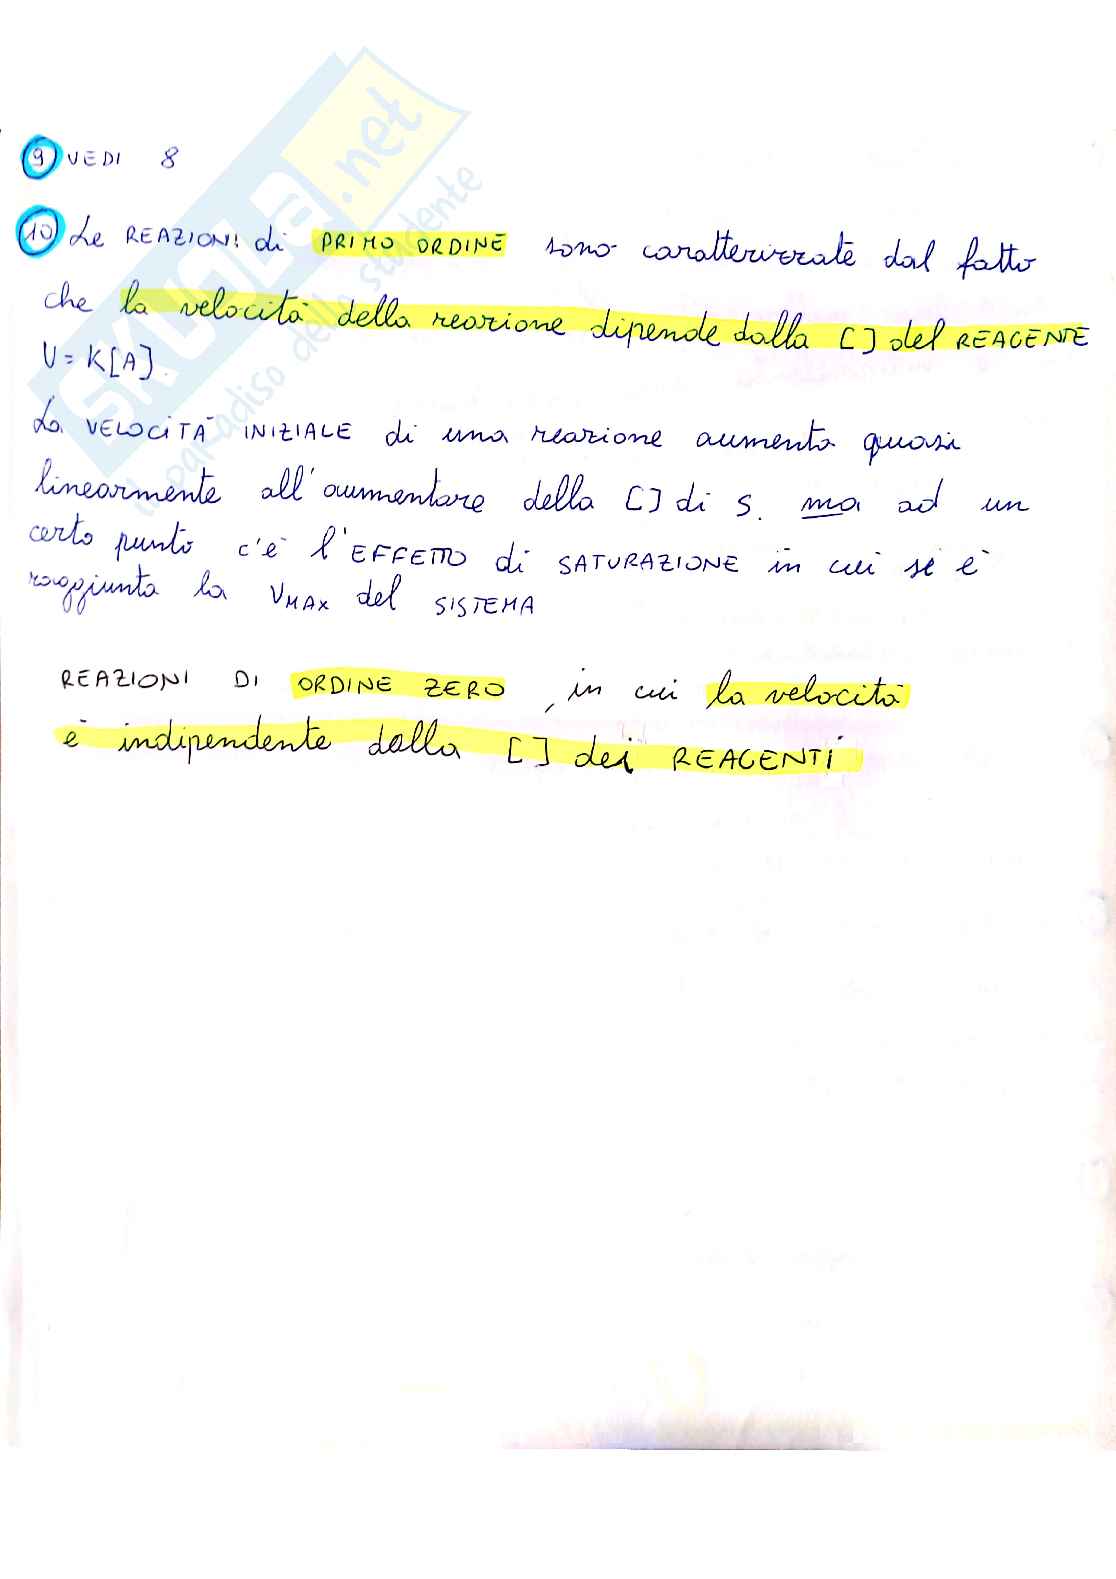 SKUOLA.net
il paradiso dello studente
9 VEDI 8
10 Le REAZIONI di PRIMO ORDINE sono caratterizzate dal fatto
che la velocità della reazione dipende dalla [] del REAGENTE
V = K[A].
La VELOCITÀ INIZIALE di una reazione aumenta quasi
linearmente all'aumentare della [] di S. ma ad un
certo punto c'è l'EFFETTO di SATURAZIONE in cui si è
raggiunta la VMAX del SISTEMA
REAZIONI DI ORDINE ZERO, in cui la velocità
è indipendente dalla [] dei REAGENTI